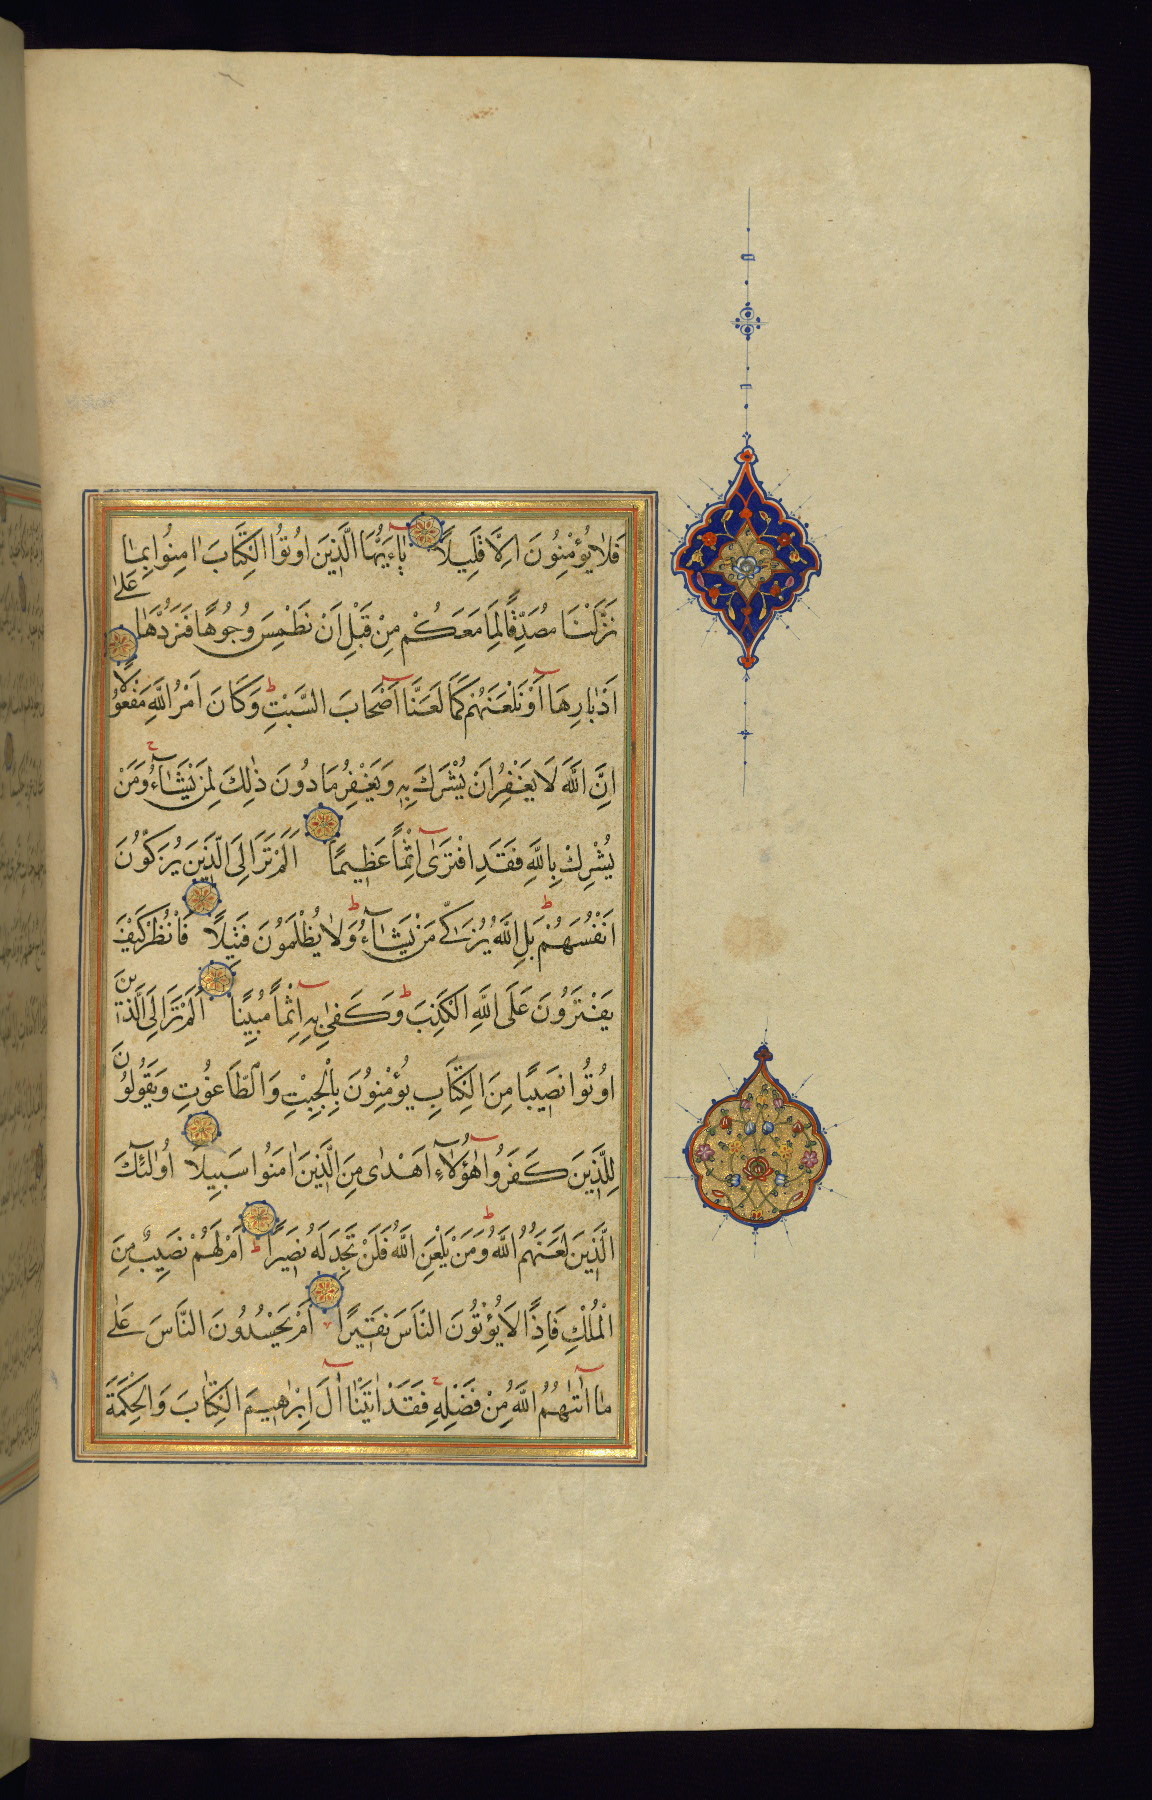 فَلَا يُؤْمِنُونَ اِلَّا قَلِيلًا يَاءَيُّهَا الَّذِينَ اُوتُوا الْكِتَابَ اٰمِنُوا بِمَا
نَزَّلْنَا مُصَدِّقًا لِمَا مَعَكُمْ مِنْ قَبْلِ اَنْ نَطْمِسَ وُجُوهًا فَنَرُدَّهَا عَلٰى
اَدْبَارِهَا اَوْ نَلْعَنَهُمْ كَمَا لَعَنَّا اَصْحَابَ السَّبْتِ وَكَانَ اَمْرُ اللَّهِ مَفْعُولًا
اِنَّ اللَّهَ لَا يَغْفِرُ اَنْ يُشْرَكَ بِهِ وَيَغْفِرُ مَا دُونَ ذٰلِكَ لِمَنْ يَشَاءُ وَمَنْ
يُشْرِكْ بِاللَّهِ فَقَدِ افْتَرٰى اِثْمًا عَظِيمًا اَلَمْ تَرَ اِلَى الَّذِينَ يُزَكُّونَ
اَنْفُسَهُمْ بَلِ اللَّهُ يُزَكِّي مَنْ يَشَاءُ وَلَا يُظْلَمُونَ فَتِيلًا فَانْظُرْ كَيْفَ
يَفْتَرُونَ عَلَى اللَّهِ الْكَذِبَ وَكَفٰى بِهِ اِثْمًا مُبِينًا اَلَمْ تَرَ اِلَى الَّذِينَ
اُوتُوا نَصِيبًا مِنَ الْكِتَابِ يُؤْمِنُونَ بِالْجِبْتِ وَالطَّاغُوتِ وَيَقُولُونَ
لِلَّذِينَ كَفَرُوا هٰؤُلَاءِ اَهْدٰى مِنَ الَّذِينَ اٰمَنُوا سَبِيلًا اُولٰئِكَ
الَّذِينَ لَعَنَهُمُ اللَّهُ وَمَنْ يَلْعَنِ اللَّهُ فَلَنْ تَجِدَ لَهُ نَصِيرًا اَمْ لَهُمْ نَصِيبٌ مِنَ
الْمُلْكِ فَاِذًا لَا يُؤْتُونَ النَّاسَ نَقِيرًا اَمْ يَحْسُدُونَ النَّاسَ عَلٰى
مَا اٰتٰىهُمُ اللَّهُ مِنْ فَضْلِهِ فَقَدْ اٰتَيْنَا اٰلَ اِبْرٰهِيمَ الْكِتَابَ وَالْحِكْمَةَ